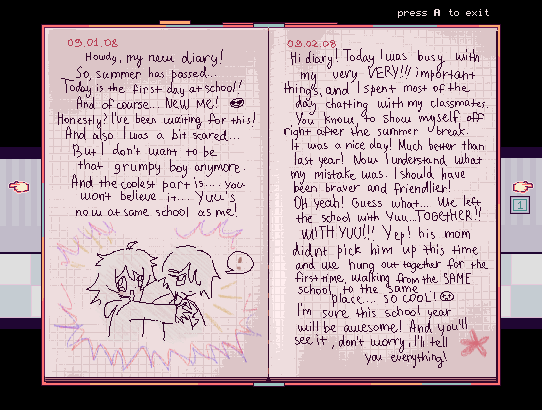 press A to exit
09.01.08
Howdy, my new diary!
So, summer has passed...
Today is the first day at school!
And of course... NEW ME!
Honestly? I've been waiting for this!
And also I was a bit scared...
But I don't want to be
that grumpy boy anymore.
And the coolest part is.... you
won't believe it.... Yuu's
now at same school as me!
!
09.02.08
Hi diary! Today I was busy with
my very VERY!!! important
things, and I spent most of the
day chatting with my classmates.
You know, to show myself off
right after the summer break.
It was a nice day! Much better than
last year! Now I understand what
my mistake was. I should have
been braver and friendlier!
OH yeah! Guess what... We left
the school with Yuu...TOGETHER!!
WITH YUU!!! Yep! his mom
didnt pick him up this time
and we hung out together for the
first time, walking from the SAME
school to the same
place... SO COOL!
I'm sure this school year
will be awesome! And you'll
see it, don't worry, I'll tell
you everything!
1